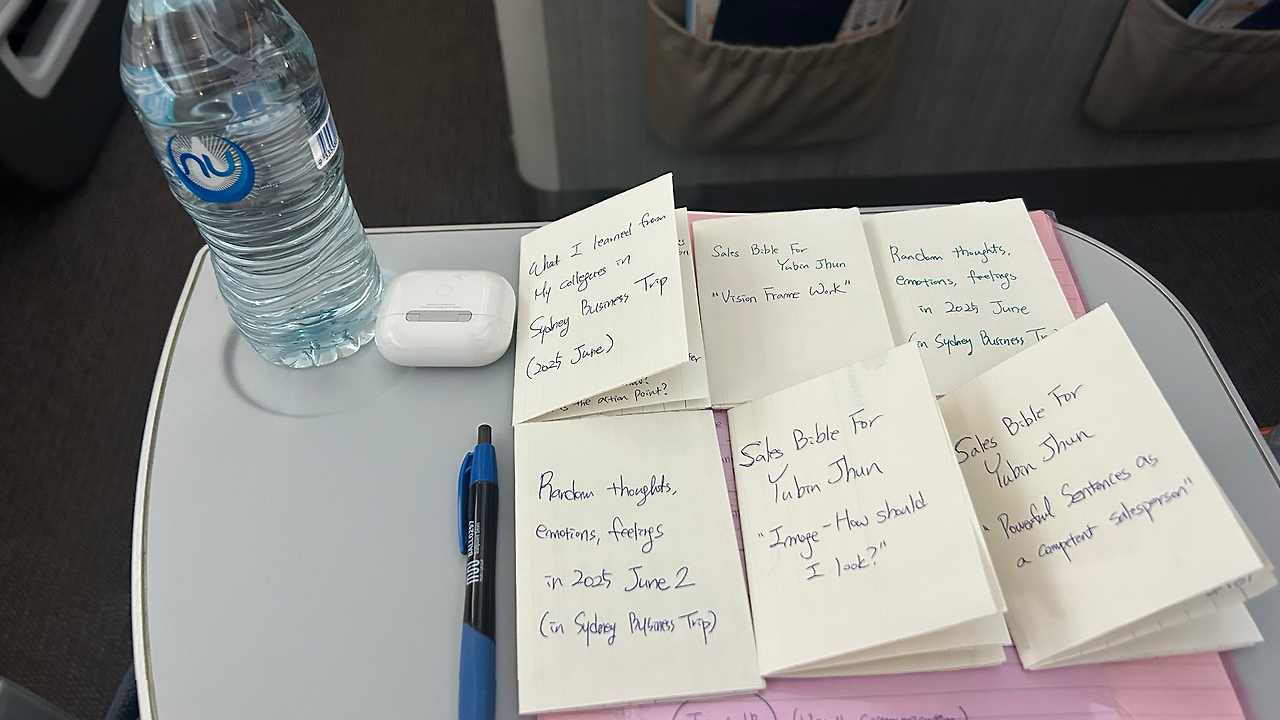 nu
What I learned from
My collegeres in
Sydney Business Trip
(2025 June)
is the action Point?
Sales Bible For
Yubin Jhun
"Vision Frame Work"
Random thoughts,
emotions, feelings
in 2025 June
(in Sydney Business Tri
Random thoughts,
emotions, feelings
in 2025 June 2
(in Sydney Business Trip)
Sales Bible For
Yubin Jhun
"Image - How should
I look?"
Sales Bible For
Yubin Jhun
"Powerful Sentences as
a competent salesperson"